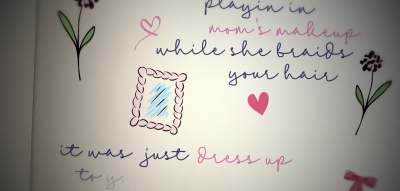 playin in
mom's makeup
while she braids
your hair
it was just dress up
to y